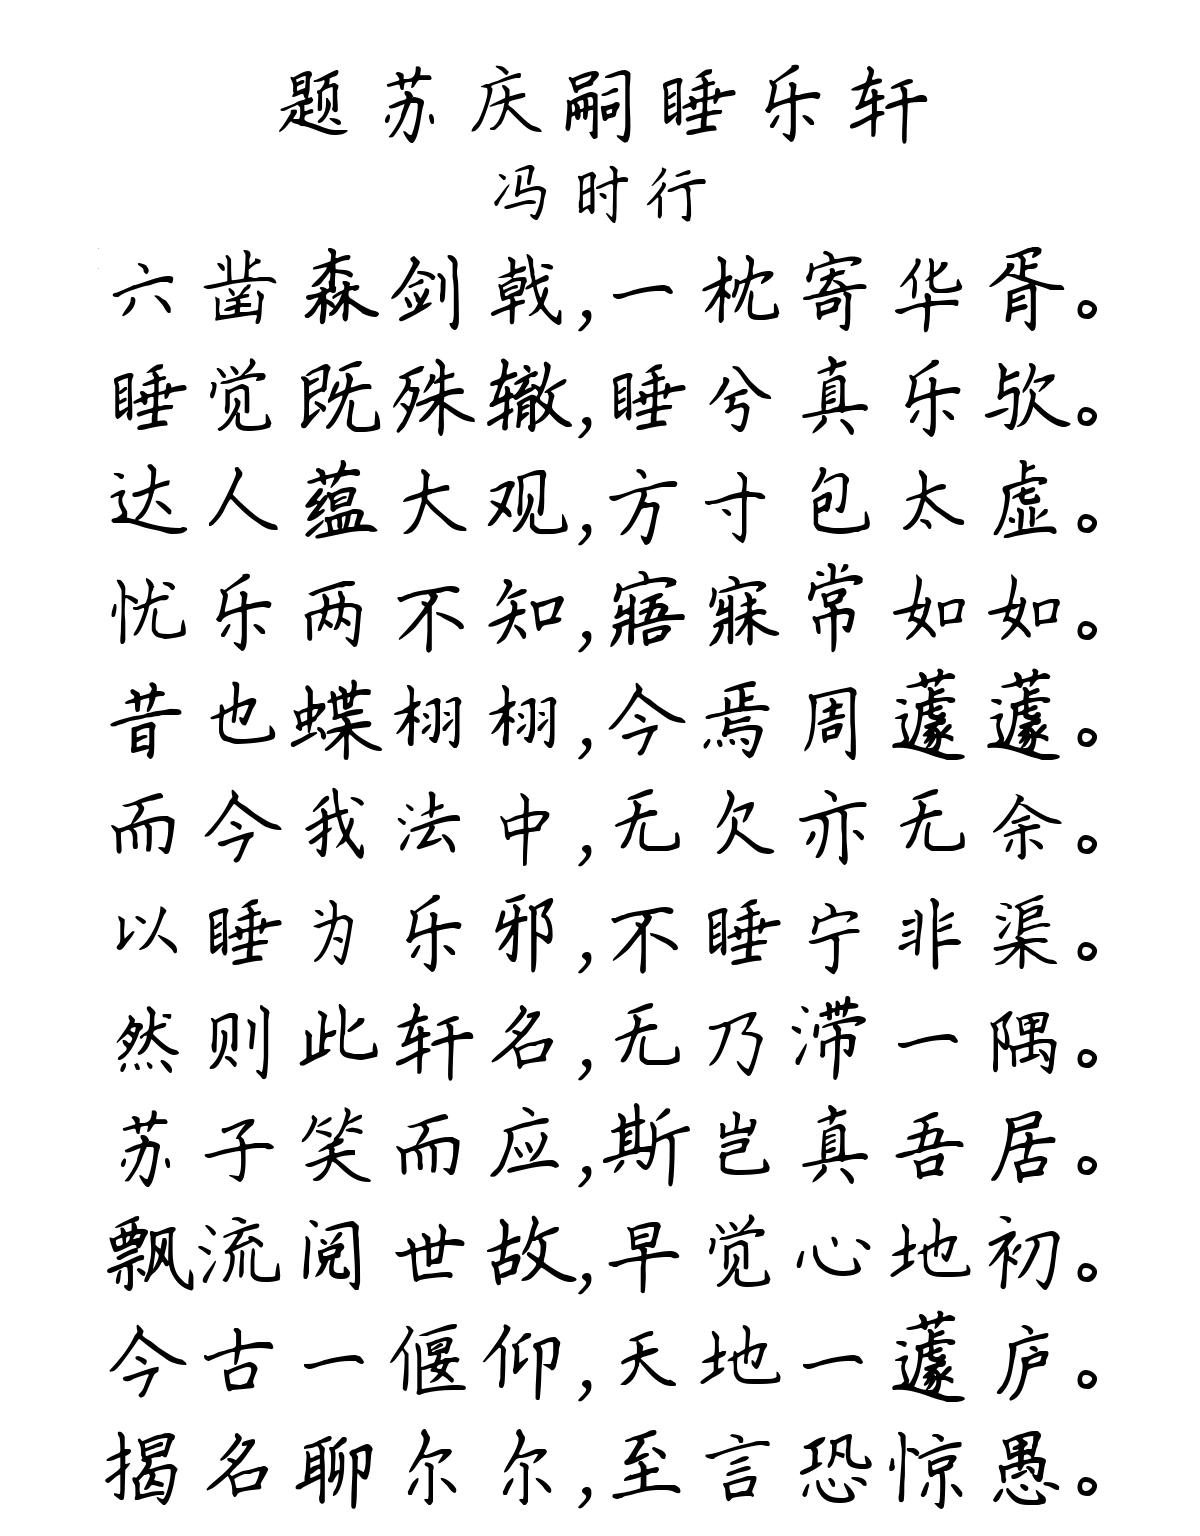 题苏庆嗣睡乐轩
冯时行
六凿森剑戟,一枕寄华胥。
睡觉既殊辙,睡兮真乐欤。
达人蕴大观,方寸包太虚。
忧乐两不知,寤寐常如如。
昔也蝶栩栩,今焉周蘧蘧。
而今我法中,无欠亦无余。
以睡为乐邪,不睡宁非渠。
然则此轩名,无乃滞一隅。
苏子笑而应,斯岂真吾居。
飘流阅世故,早觉心地初。
今古一偃仰,天地一蘧庐。
揭名聊尔尔,至言恐惊愚。